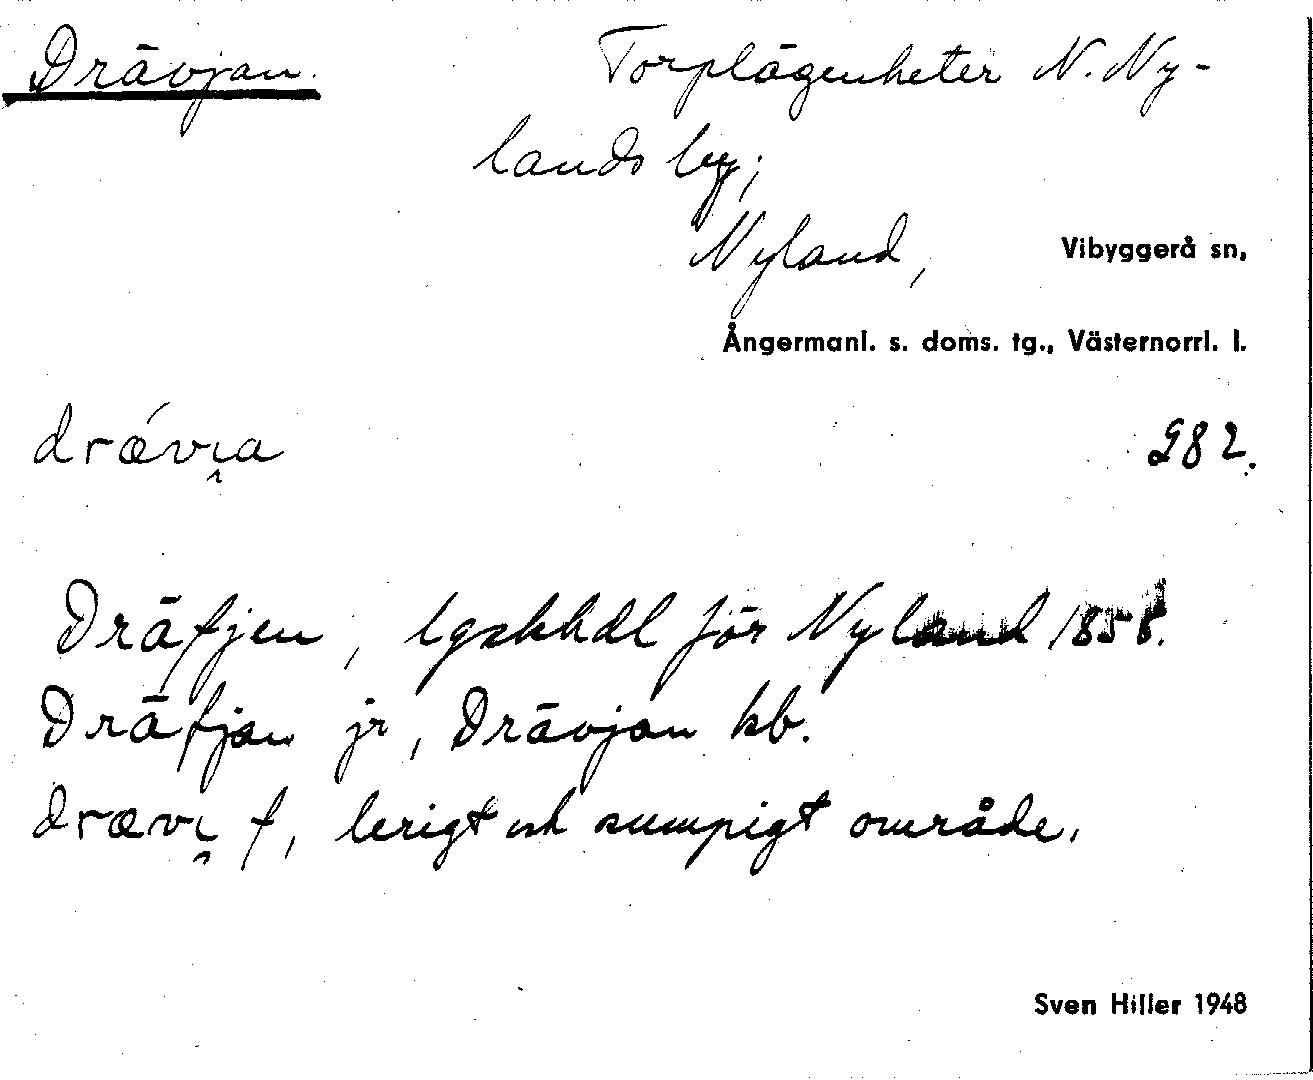 Drävjan. Torplägenheter N. Ny-
lands by;
Nyland, Vibyggerå sn,
Ångermanl. s. doms. tg., Västernorrl. l.
drǽvi̯a 982.
Dräfjen, lgskhdl för Nyland 1858.
Dräfjan jr, Drävjan kb.
drævi̯ f, lerigt och sumpigt område.
Sven Hiller 1948